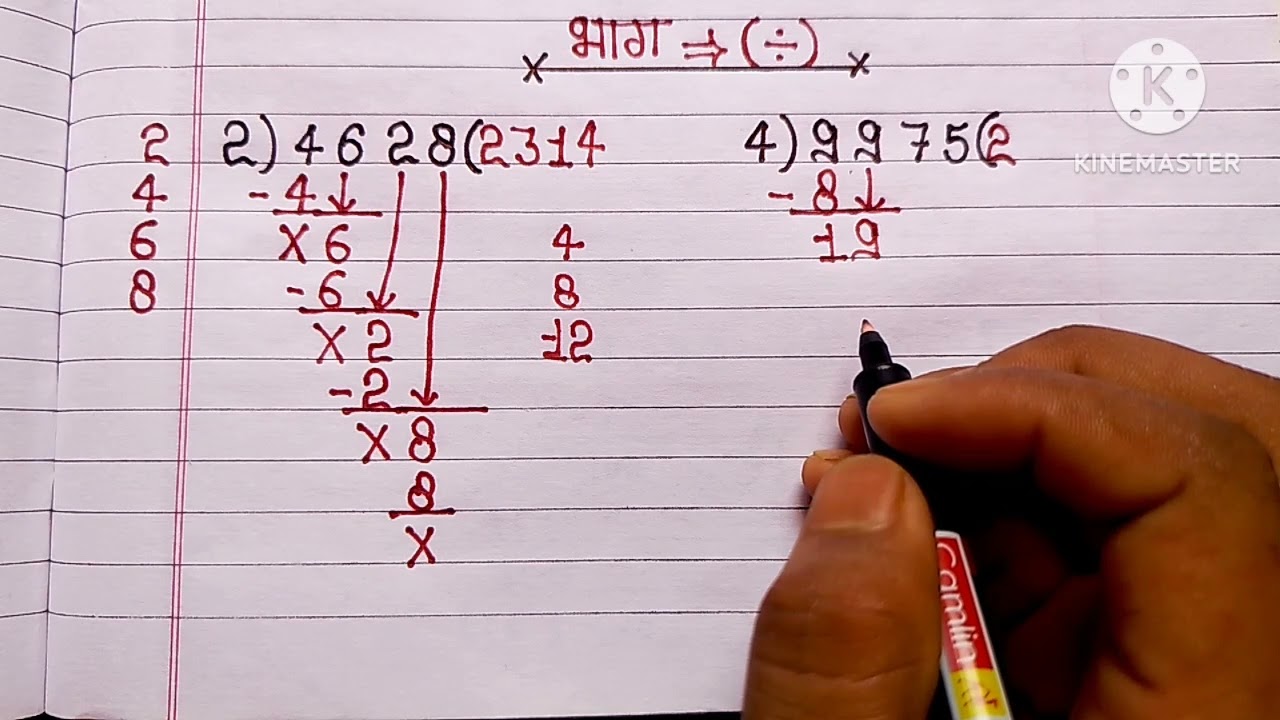 भाग ⇒ (÷)
x x
2
4
6
8
2) 4 6 2 8 (2314
- 4 ↓
x 6
- 6
x 2
- 2
x 8
8
x
4
8
12
4) 9 9 7 5 (2
- 8 ↓
1 9
K
KINEMASTER
Camlin